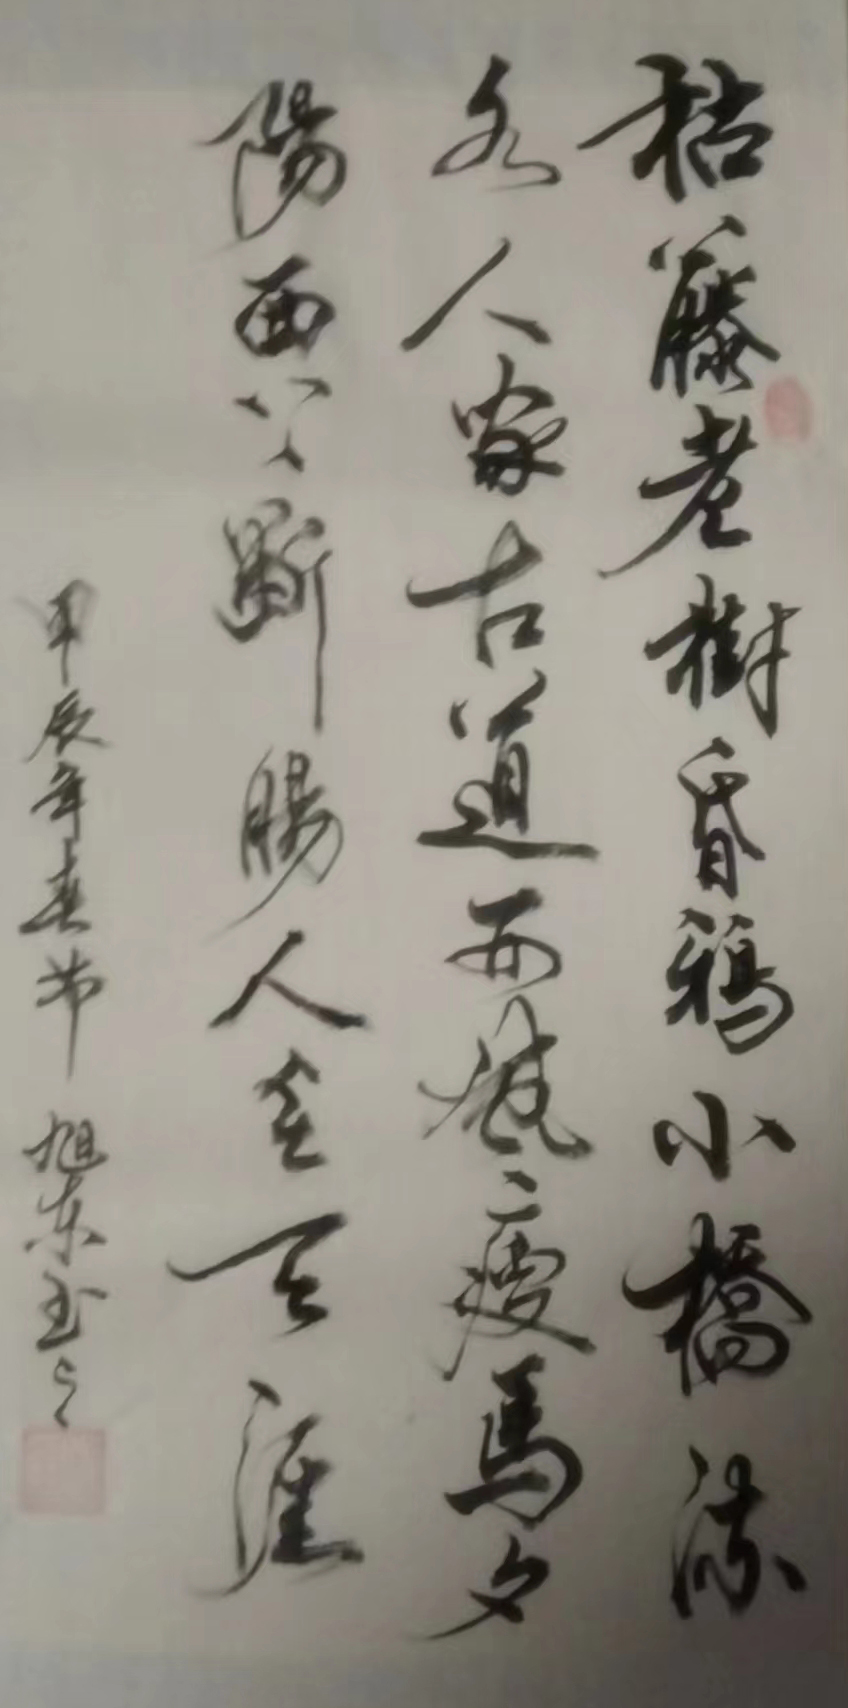 枯藤老樹昏鴉小橋流
水人家古道西風瘦馬夕
陽西下斷腸人在天涯
甲辰年春节 旭东